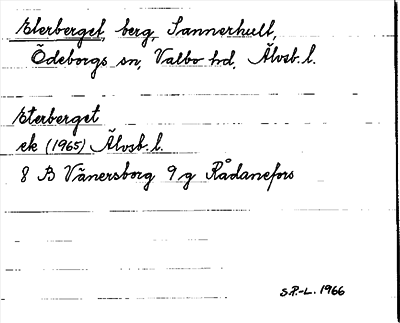 Eterberget, berg, Sannerhult,
Ödeborgs sn, Valbo hd, Älvsb. l.
Eterberget
ek (1965) Älvsb. l.
8 B Vänersborg 9 g Rådanefors
S.R.-L. 1966